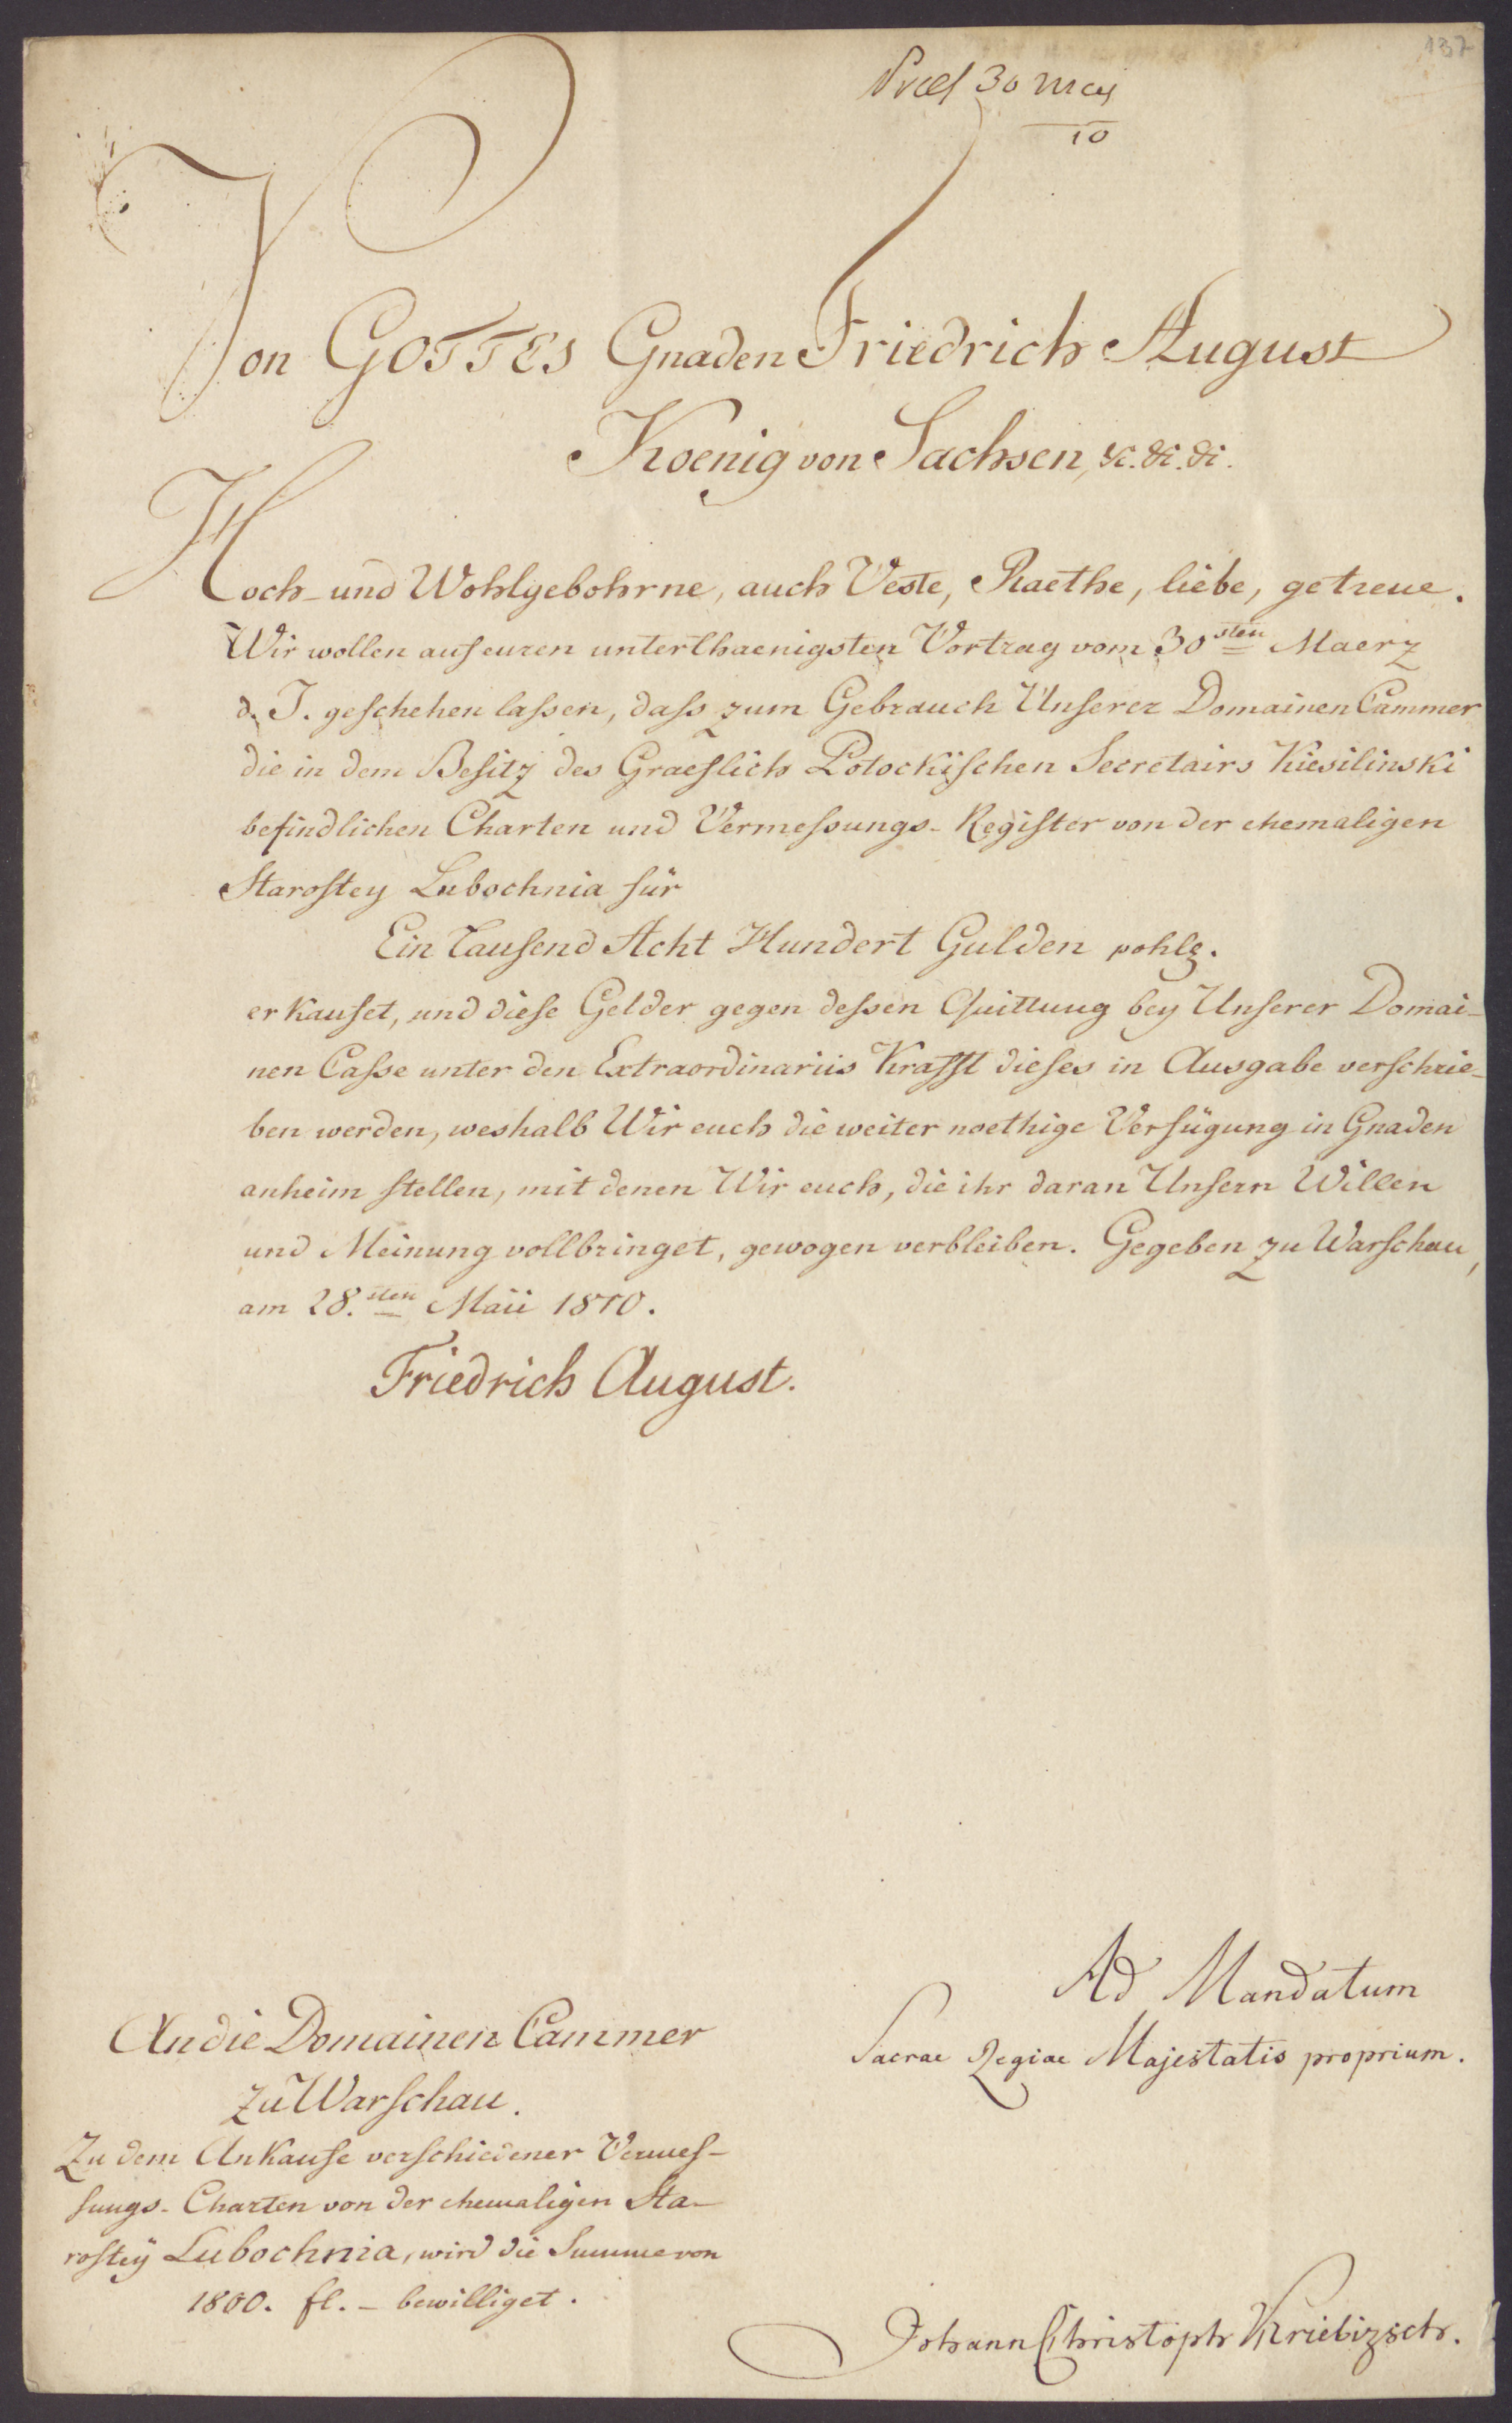 137
Præs 30 May
10
Von GOTTES Gnaden Friedrich August
Koenig von Sachsen, &c. &c. &c.
Hoch- und Wohlgebohrne, auch Veste, Raethe, liebe, getreue.
Wir wollen auf euren unterthaenigsten Vortrag vom 30sten Maerz
d. J. geſchehen laſsen, daſs zum Gebrauch Unſerer Domainen Cammer
die in dem Beſitz des Graeflich Potockiſchen Secretairs Kiesilinski
befindlichen Charten und Vermeſsungs-Regiſter von der ehemaligen
Staroſtey Lubochnia für
Ein Tauſend Acht Hundert Gulden pohls.
erkaufet, und dieſe Gelder gegen deſsen Quittung bey Unſerer Domai-
nen Caſse unter den Extraordinariis Krafft dieſes in Ausgabe verschrie-
ben werden, weshalb Wir euch die weiter noethige Verfügung in Gnaden
anheim ſtellen, mit denen Wir euch, die ihr daran Unſern Willen
und Meinung vollbringet, gewogen verbleiben. Gegeben zu Warſchau,
am 28.sten Maii 1810.
Friedrich August.
Ad Mandatum
Sacrae Regiae Majestatis proprium.
An die Domainen Cammer
zu Warſchau.
Zu dem Ankaufe verſchiedener Vermeſ-
ſungs-Charten von der ehemaligen Sta-
roſtey Lubochnia, wird die Summe von
1800. fl. - bewilliget.
Johann Christoph Kriebizsch.